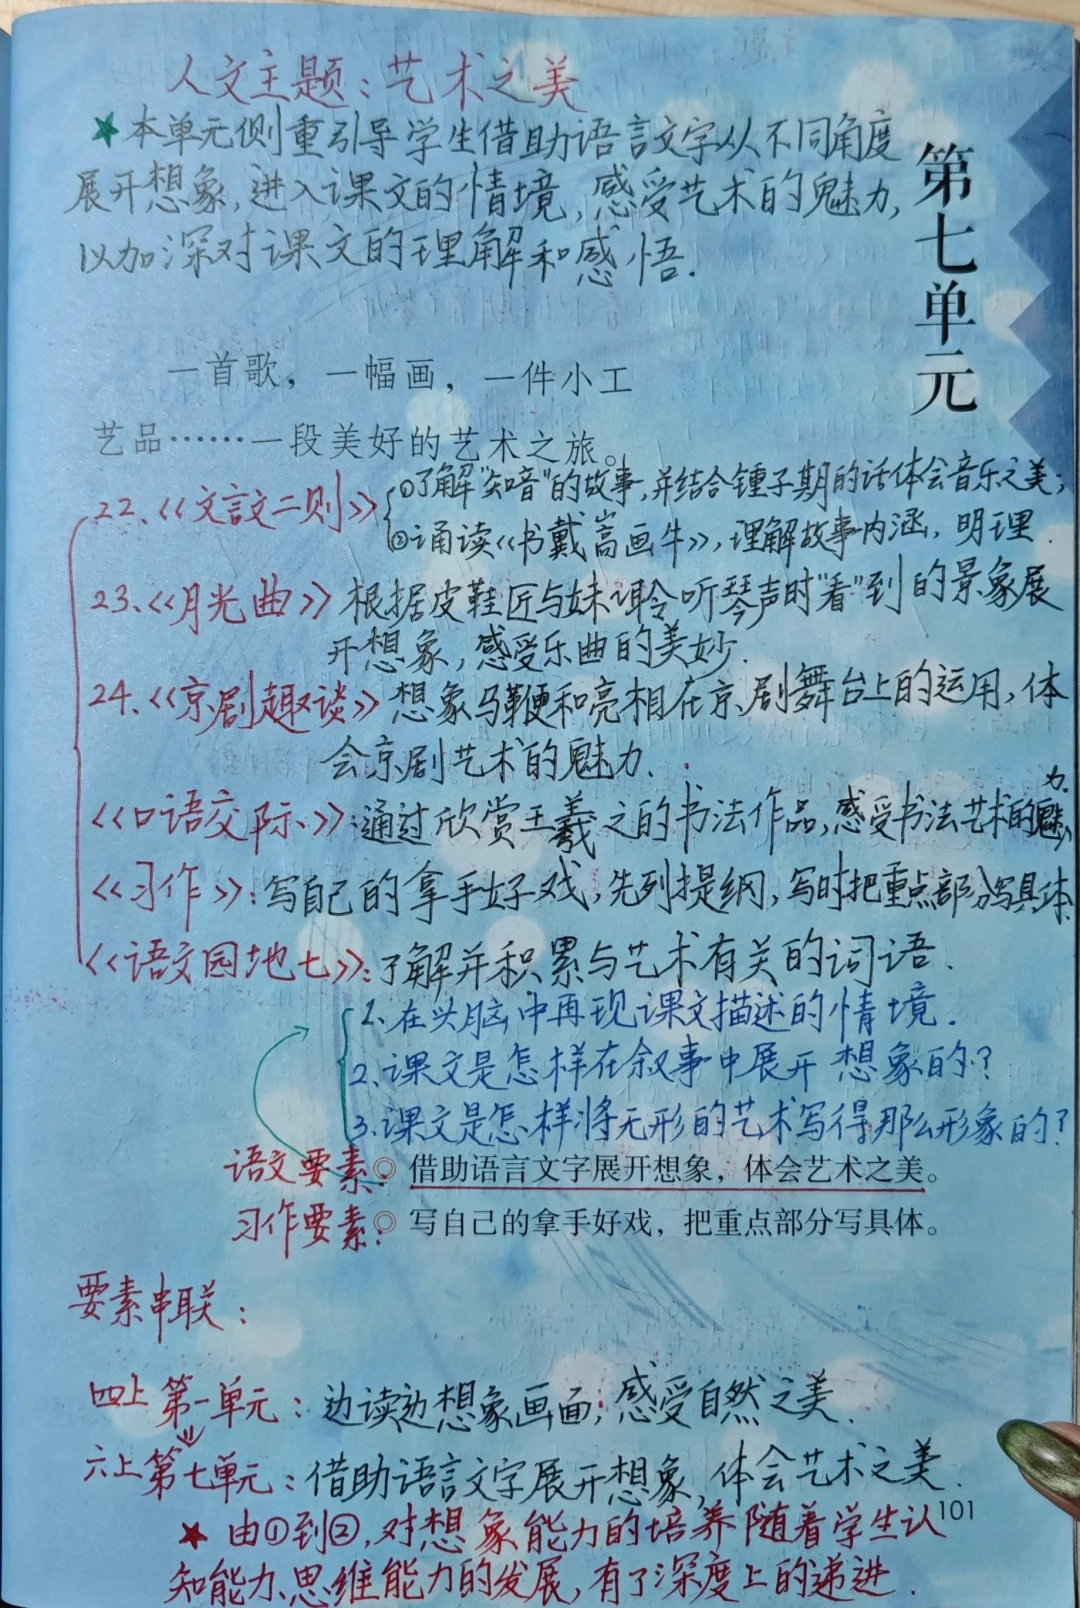 人文主题：艺术之美
★本单元侧重引导学生借助语言文字从不同角度
展开想象,进入课文的情境,感受艺术的魅力,
以加深对课文的理解和感悟.
第七单元
一首歌，一幅画，一件小工
艺品……一段美好的艺术之旅。
22.《文言文二则》
①了解“知音”的故事,并结合锺子期的话体会音乐之美;
②诵读《书戴嵩画牛》,理解故事内涵,明理.
23.《月光曲》根据皮鞋匠与妹妹聆听琴声时“看”到的景象展
开想象,感受乐曲的美妙.
24.《京剧趣谈》想象马鞭和亮相在京剧舞台上的运用,体
会京剧艺术的魅力.
《口语交际》:通过欣赏王羲之的书法作品,感受书法艺术的魅力.
《习作》:写自己的拿手好戏,先列提纲,写时把重点部分写具体.
《语文园地七》:了解并积累与艺术有关的词语.
1.在头脑中再现课文描述的情境.
2.课文是怎样在叙事中展开想象的?
3.课文是怎样将无形的艺术写得那么形象的?
语文要素：◎ 借助语言文字展开想象，体会艺术之美。
习作要素：◎ 写自己的拿手好戏，把重点部分写具体。
要素串联：
四上第一单元：边读边想象画面,感受自然之美.
六上第七单元：借助语言文字展开想象,体会艺术之美.
101
★由①到②,对想象能力的培养随着学生认
知能力、思维能力的发展,有了深度上的递进.